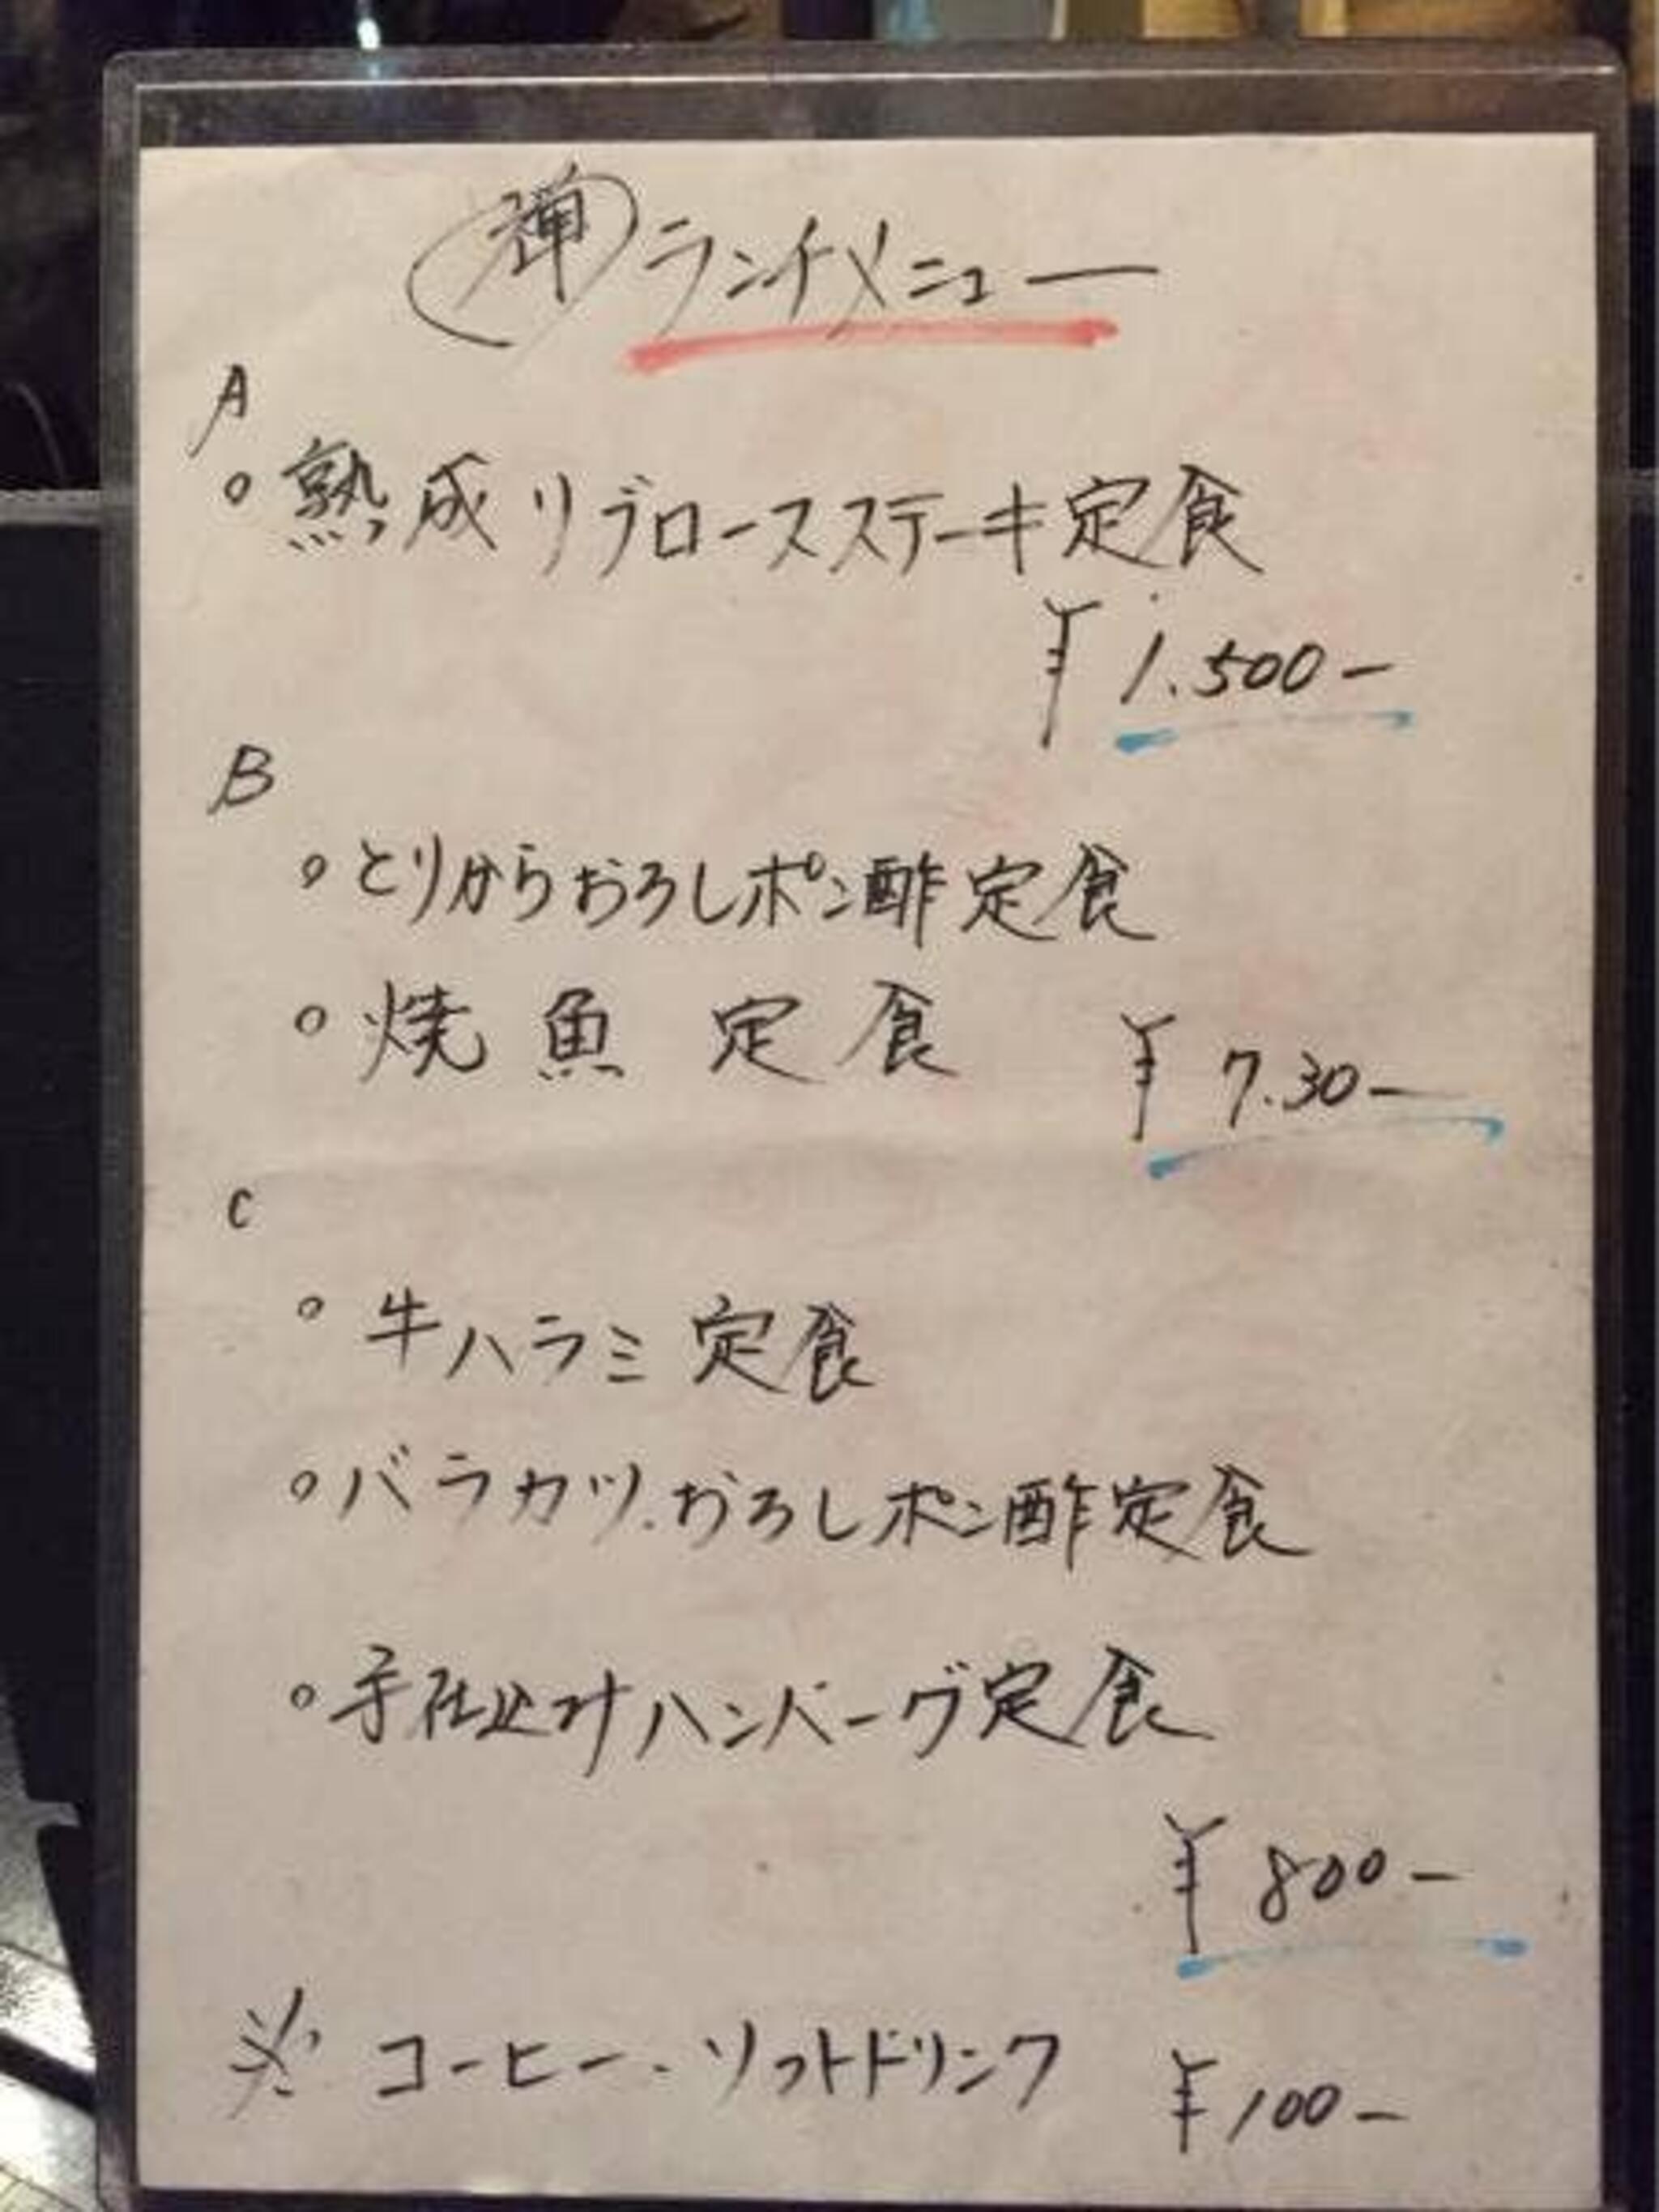 禅 ランチメニュー
A
○ 熟成リブロースステーキ定食
¥ 1.500-
B
○ とりからおろしポン酢定食
○ 焼魚定食 ¥ 7.30-
C
○ 牛ハラミ定食
○ バラカツ.おろしポン酢定食
○ 手仕込みハンバーグ定食
¥ 800-
※ コーヒー・ソフトドリンク ¥100-